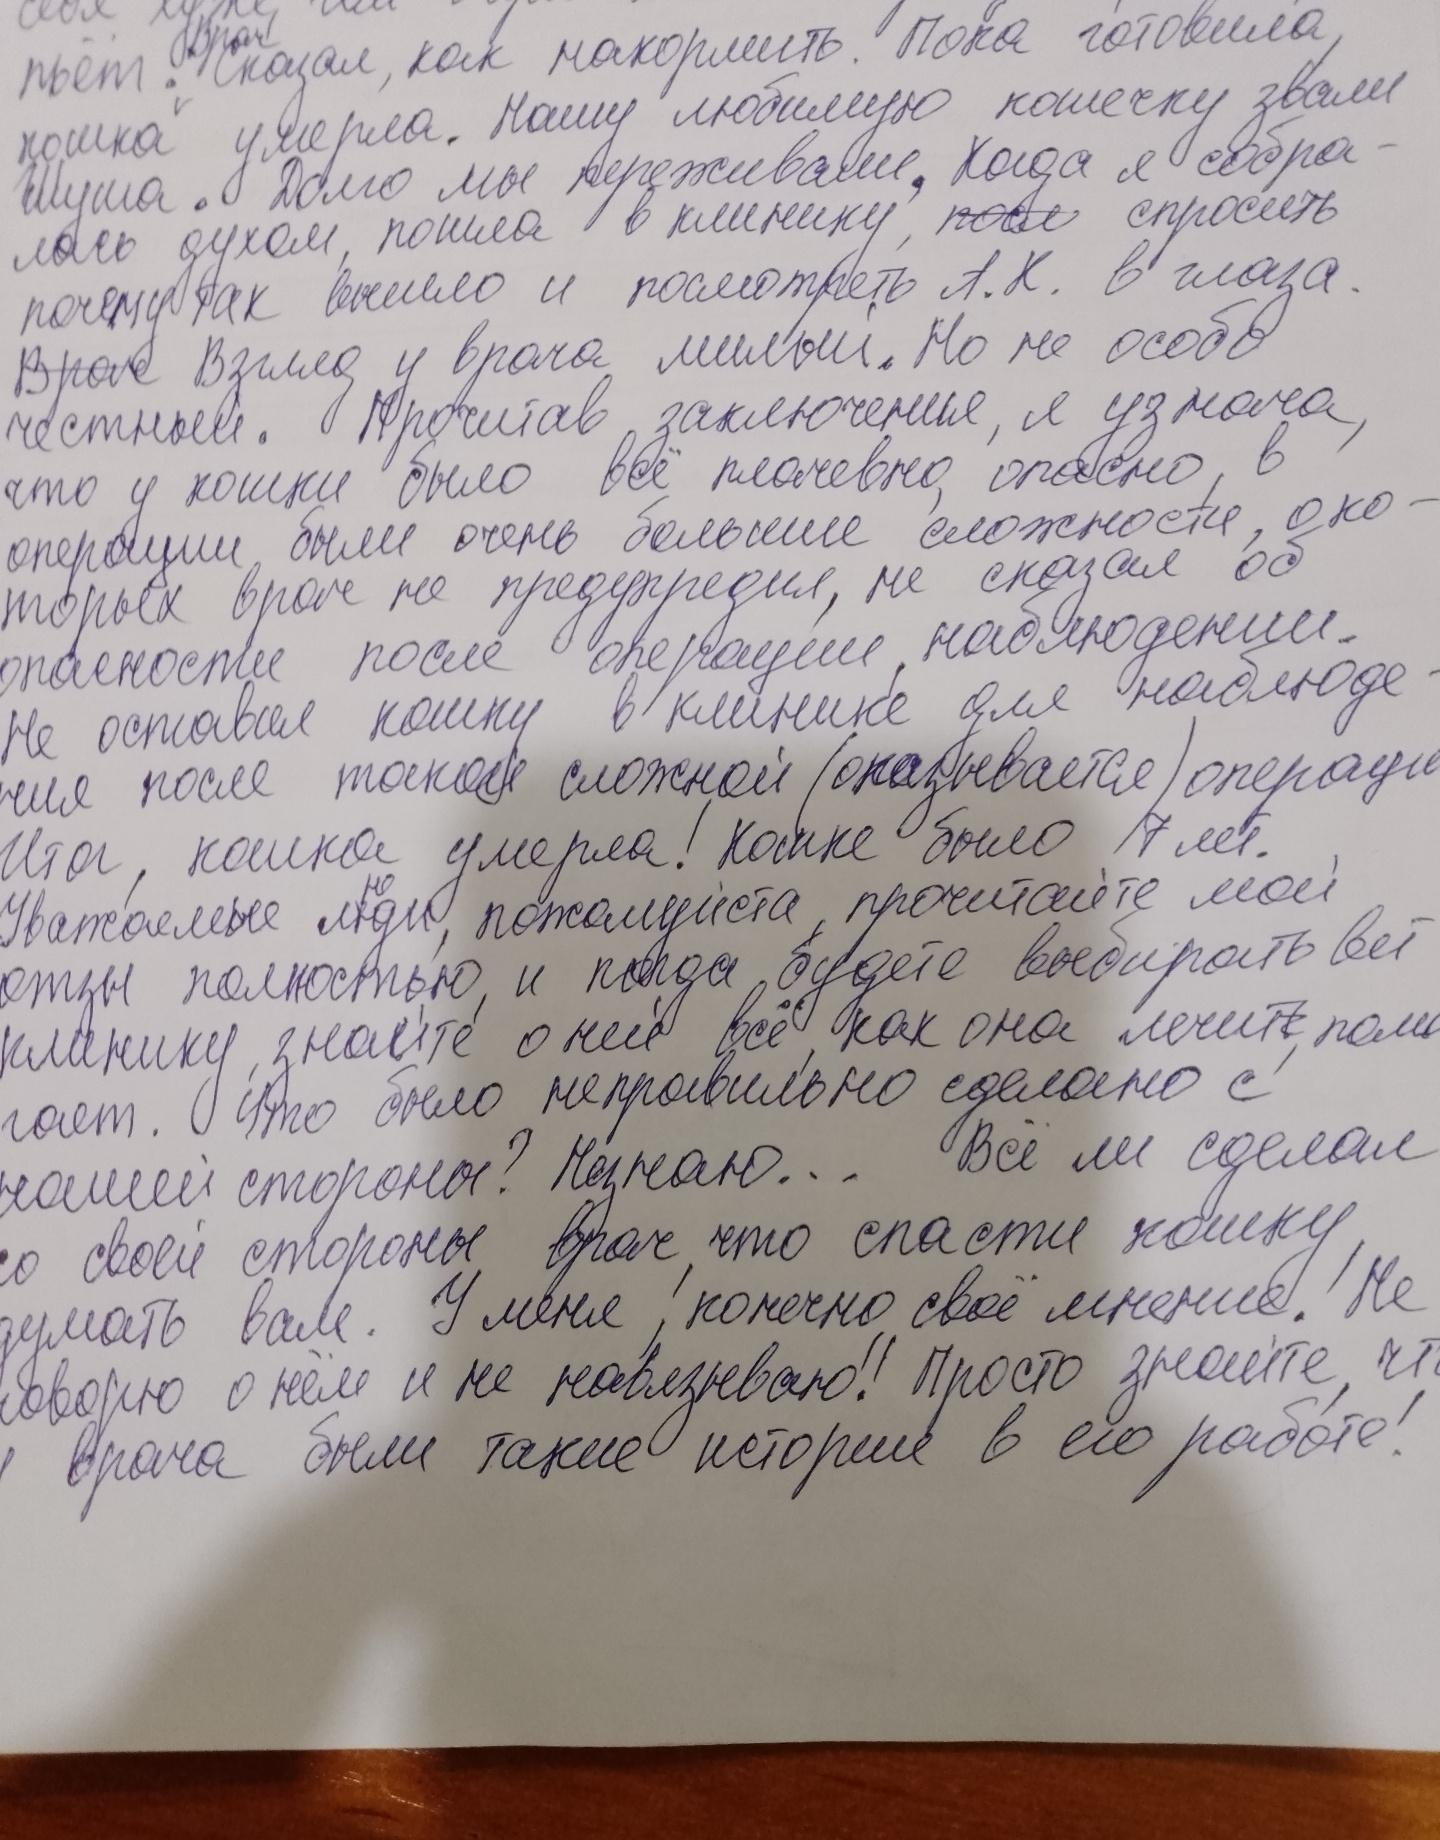 себя хуже, чем
пьёт. Врач сказал, как накормить. Пока готовила,
кошка умерла. Нашу любимую кошечку звали
Шуша. Долго мы переживали. Когда я собра-
лась духом, пошла в клинику, спросить
почему так вышло и посмотреть А.К. в глаза.
Врач Взгляд у врача милый. Но не особо
честный. Прочитав заключения, я узнала,
что у кошки было всё плачевно, опасно, в
операции были очень большие сложности, о ко-
торых врач не предупредил, не сказал об
опасности после операции, наблюдении.
Не оставил кошку в клинике для наблюде-
ния после такой сложной (оказывается) операции
Итог, кошка умерла! Кошке было 7 лет.
Уважаемые люди, пожалуйста, прочитайте мой
отзы полностью, и когда будете выбирать вет
клинику, знайте о ней всё, как она лечит, помо
гает. Что было неправильно сделано с
нашей стороны? Незнаю... Всё ли сделал
со своей стороны врач, что спасти кошку,
думать вам. У меня, конечно своё мнение! Не
говорю о нём и не навязываю!! Просто знайте, что
у врача были такие истории в его работе!